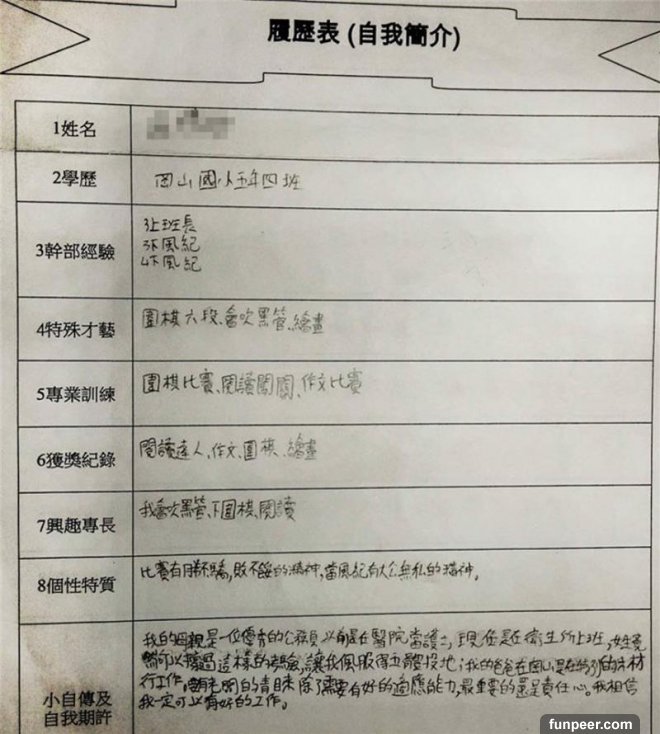 履歷表 (自我簡介)
1姓名
2學歷 岡山國小五年四班
3幹部經驗 3上班長
3下風紀
4下風紀
4特殊才藝 圍棋六段、會吹黑管、繪畫
5專業訓練 圍棋比賽、閱讀闖關、作文比賽
6獲獎紀錄 閱讀達人、作文、圍棋、繪畫
7興趣專長 我會吹黑管、下圍棋、閱讀
8個性特質 比賽有勝不驕,敗不餒的精神,當風紀有大公無私的精神。
小自傳及
自我期許
我的母親是一位優秀的公務員以前是在醫院當護士,現任是在衛生所上班,
可以 過這樣的考驗,讓我佩服得五體投地;我的爸爸在岡山 的
行工作。 的青睞除了需要有好的適應能力,最重要的還是責任心。我相信
我一定可以有好的工作。
funpeer.com